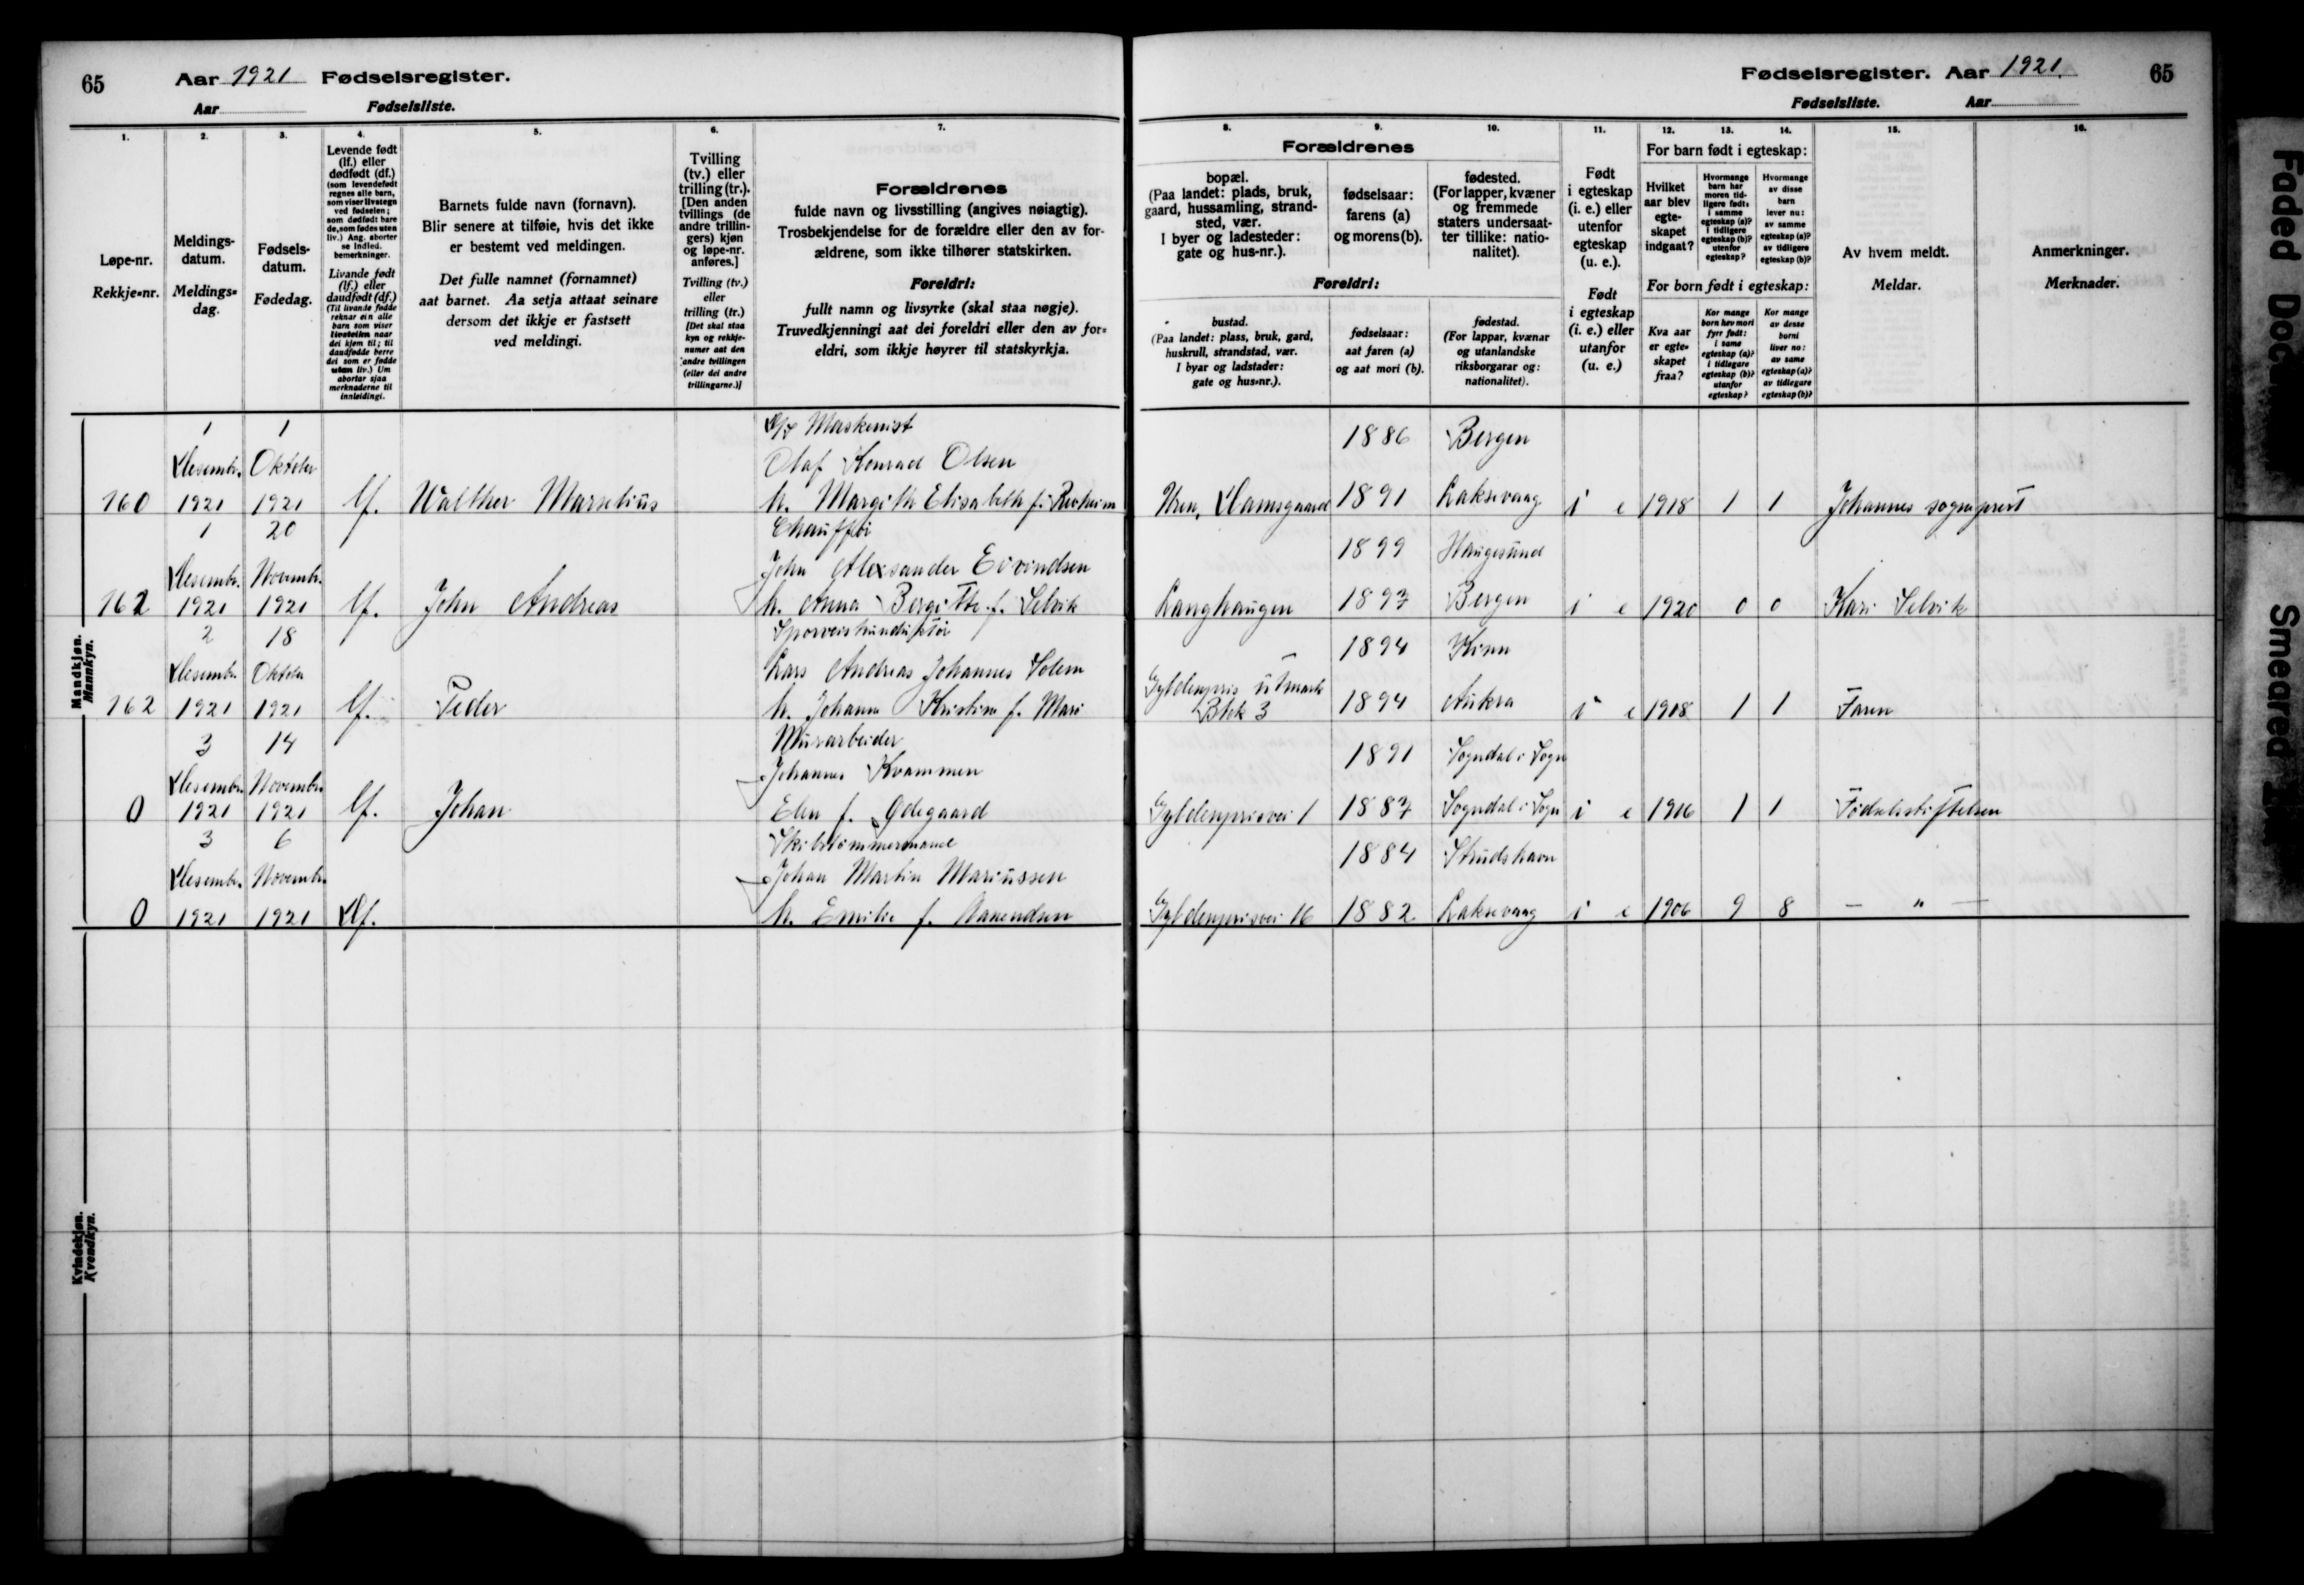 65 Aar 1921 Fødselsregister.
Aar Fødselsliste.
Fødselsregister. Aar 1921. 65
Fødselsliste. Aar
1. 2. 3. 4. 5. 6. 7.
Løpe-nr.
Rekkje-nr.
Meldings-
datum.
Meldings-
dag.
Fødsels-
datum.
Fødedag.
Levende født
(lf.) eller
dødfødt (df.)
(som levendefødt
regnes alle barn,
som viser livstegn
ved fødselen;
som dødfødt bare
de, som fødes uten
liv.) Ang. aborter
se indled.
bemerkninger.
Livande født
(lf.) eller
daudfødt (df.)
(Til livande fødde
reknar ein alle
barn som viser
livsteikn naar
dei kjem til; til
daudfødde berre
dei som er fødde
utan liv.) Um
abortar sjaa
merknaderne til
innleidingi.
Barnets fulde navn (fornavn).
Blir senere at tilføie, hvis det ikke
er bestemt ved meldingen.
Det fulle namnet (fornamnet)
aat barnet. Aa setja attaat seinare
dersom det ikkje er fastsett
ved meldingi.
Tvilling
(tv.) eller
trilling (tr.).
[Den anden
tvillings (de
andre trillin-
gers) kjøn
og løpe-nr.
anføres.]
Tvilling (tv.)
eller
trilling (tr.)
[Det skal staa
kyn og rekkje-
numer aat den
andre tvillingen
(eller dei andre
trillingarne.)]
Forældrenes
fulde navn og livsstilling (angives nøiagtig).
Trosbekjendelse for de forældre eller den av for-
ældrene, som ikke tilhører statskirken.
Foreldri:
fullt namn og livsyrke (skal staa nøgje).
Truvedkjenningi aat dei foreldri eller den av for-
eldri, som ikkje høyrer til statskyrkja.
8. 9. 10. 11. 12. 13. 14. 15. 16.
Forældrenes
bopæl.
(Paa landet: plads, bruk,
gaard, hussamling, strand-
sted, vær.
I byer og ladesteder:
gate og hus-nr.).
fødselsaar:
farens (a)
og morens (b).
fødested.
(For lapper, kvæner
og fremmede
staters undersaat-
ter tillike: natio-
nalitet).
Foreldri:
bustad.
(Paa landet: plass, bruk, gard,
huskrull, strandstad, vær.
I byar og ladstader:
gate og hus-nr.).
fødselsaar:
aat faren (a)
og aat mori (b).
fødestad.
(For lappar, kvænar
og utanlandske
riksborgarar og:
nationalitet).
Født
i egteskap
(i. e.) eller
utenfor
egteskap
(u. e.).
Født
i egteskap
(i. e.) eller
utanfor
(u. e.)
For barn født i egteskap:
Hvilket
aar blev
egte-
skapet
indgaat?
Hvormange
barn har
moren tid-
ligere født:
i samme
egteskap (a)?
i tidligere
egteskap (b)?
utenfor
egteskap?
Hvormange
av disse
barn
lever nu:
av samme
egteskap (a)?
av tidligere
egteskap (b)?
For born født i egteskap:
Kva aar
er egte-
skapet
fraa?
Kor mange
born hev mori
fyrr født:
i same
egteskap (a)?
i tidlegare
egteskap (b)?
utanfor
egteskap?
Kor mange
av desse
borni
liver no:
av same
egteskap (a)?
av tidlegare
egteskap (b)?
Av hvem meldt.
Meldar.
Anmerkninger.
Merknader.
Mandkjøn.
Mannkyn.
1 1 Maskinist 1886 Bergen
Desembr. Oktober Olaf Konrad Olsen
160 1921 1921 lf. Walther Marselius h. Margith Elisabeth f. 1891 Laksevaag i e 1918 1 1 Johannes sogneprest
1 20 Chauffør 1899 Haugesund
Desembr. Novembr. John Alexsander Eivindsen
162 1921 1921 lf. John Andreas h. Anna Bergithe f. Selvik Langhaugen 1893 Bergen i e 1920 0 0 Kari Selvik
2 18 Sporveiskunduktør 1894 Kinn
Desembr. Oktober Lars Andreas Johannes Solem Gyldenpris utmark
162 1921 1921 lf. Peder h. Johanna Kristine f. Mari Blok 3 1894 Aukra i e 1918 1 1 Faren
3 14 Murarbeider 1891 Sogndal i Sogn
Desembr. Novembr. Johannes Kvammen
0 1921 1921 lf. Johan Elen f. Ødegaard Gyldenprisvei 1 1883 Sogndal i Sogn i e 1916 1 1 Fødselsstiftelsen
3 6 Skibstømmermand 1884 Strudshavn
Desembr. Novembr. Johan Martin Mariussen
0 1921 1921 Df. h. Emilie f. Aanendsen Gyldenprisvei 16 1882 Laksevaag i e 1906 9 8 — " —
Kvindekjøn.
Kvendkyn.
Faded Doc
Smeared